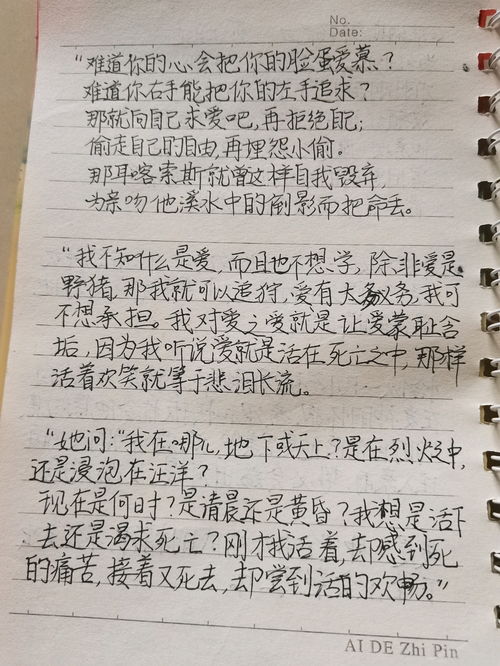 No.
Date:
“难道你的心会把你的脸蛋爱慕？
难道你右手能把你的左手追求？
那就向自己求爱吧,再拒绝自己;
偷走自己的自由,再埋怨小偷。
那耳喀索斯就曾这样自我毁弃,
为亲吻他溪水中的倒影而把命丢。
“我不知什么是爱,而且也不想学,除非爱是
野猪,那我就可以追狩,爱有大务义务,我可
不想承担。我对爱之爱就是让爱蒙耻含
垢,因为我听说爱就是活在死亡之中,那样
活着欢笑就等于悲泪长流。
“她问:“我在哪儿,地下或天上?是在烈火之中,
还是浸泡在汪洋?
现在是何时?是清晨还是黄昏?我想是活下
去还是渴求死亡?刚才我活着,却感到死
的痛苦,接着又死去,却尝到活的欢畅。”
AI DE Zhi Pin